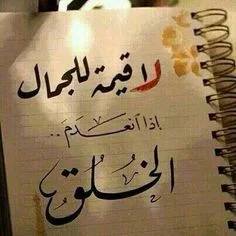 لا قيمة للجمال
إذا انعدم ..
الخلق